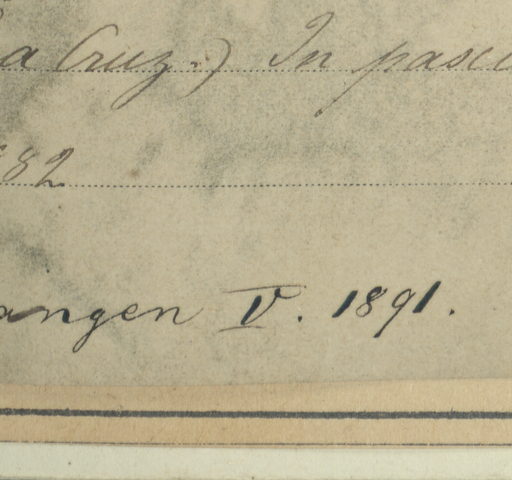 a Cruz.) In pascu
882
angen V. 1891.